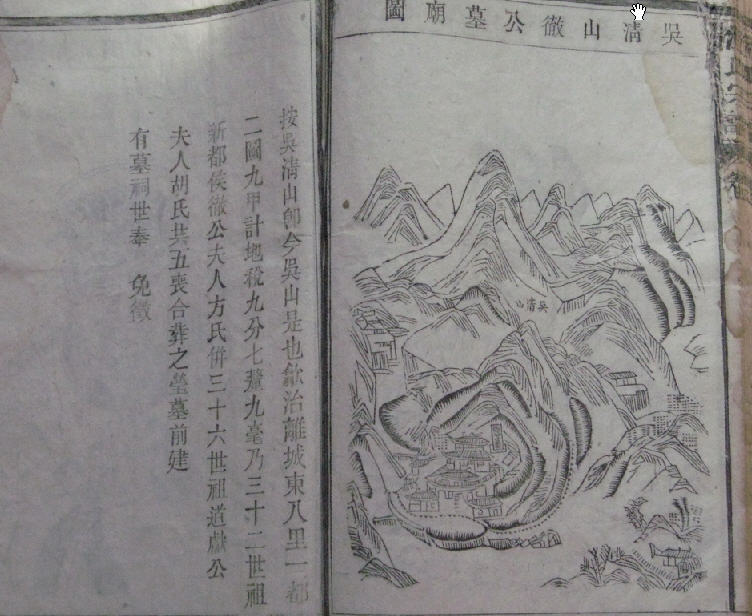 吳清山徹公墓廟圖
吳清山
按吳清山即今吳山是也歙治離城東八里一都
二圖九甲計地稅九分七釐九毫乃三十二世祖
新都侯徹公夫人方氏併三十六世祖道獻公
夫人胡氏共五喪合葬之塋墓前建
有墓祠世奉　免徵